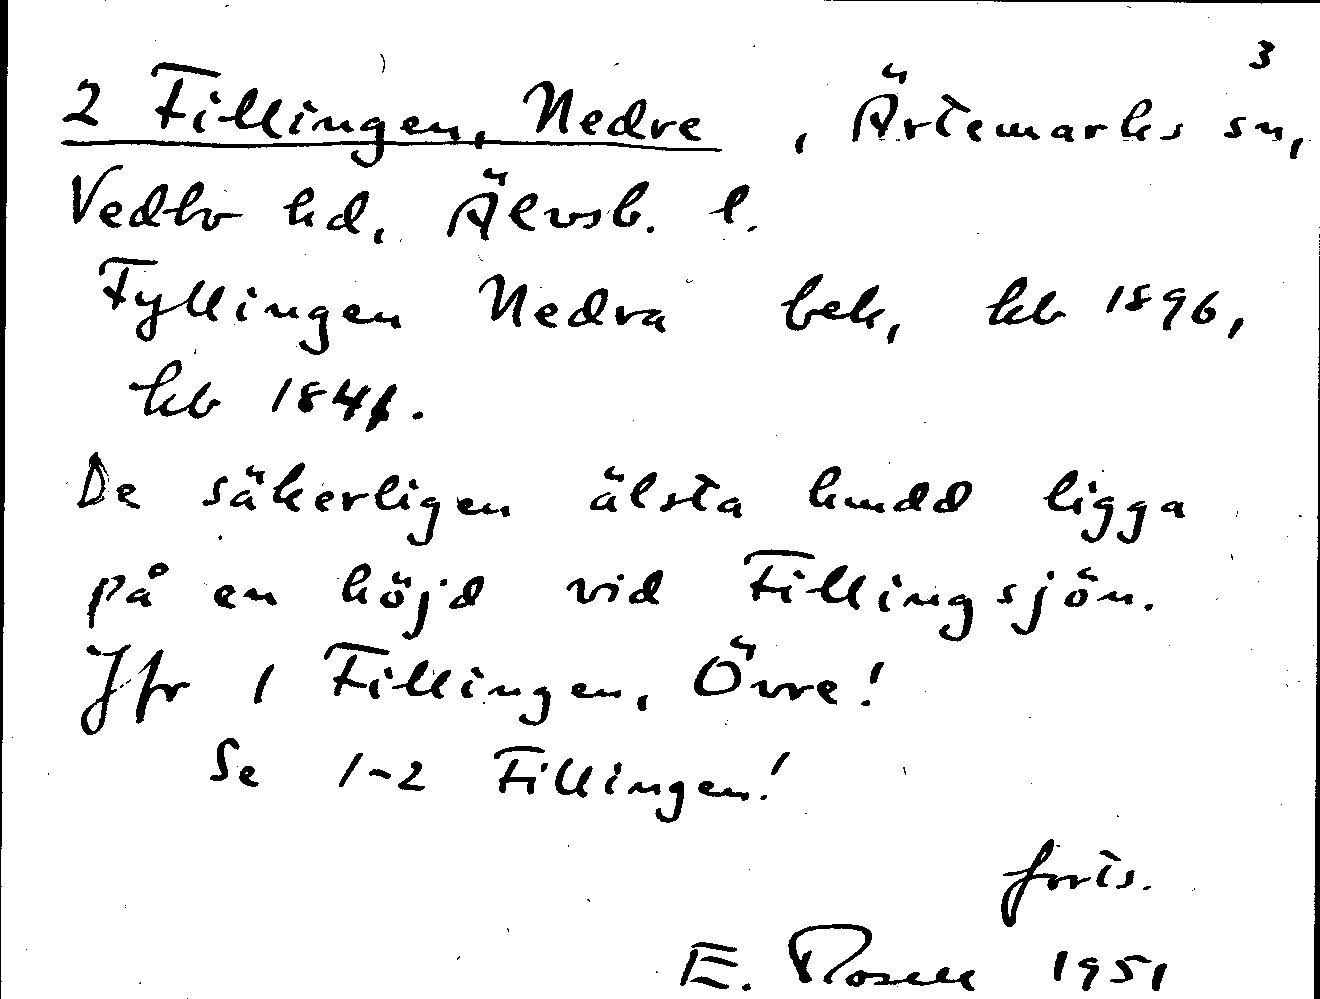 3
2 Fillingen, Nedre, Ärtemarks sn,
Vedbo hd, Älvsb. l.
Fyllingen Nedra bek, kb 1896,
kb 1841.
De säkerligen älsta hmdd ligga
på en höjd vid Fillingsjön.
Jfr 1 Fillingen, Övre!
Se 1-2 Fillingen!
forts.
E. Rosell 1951